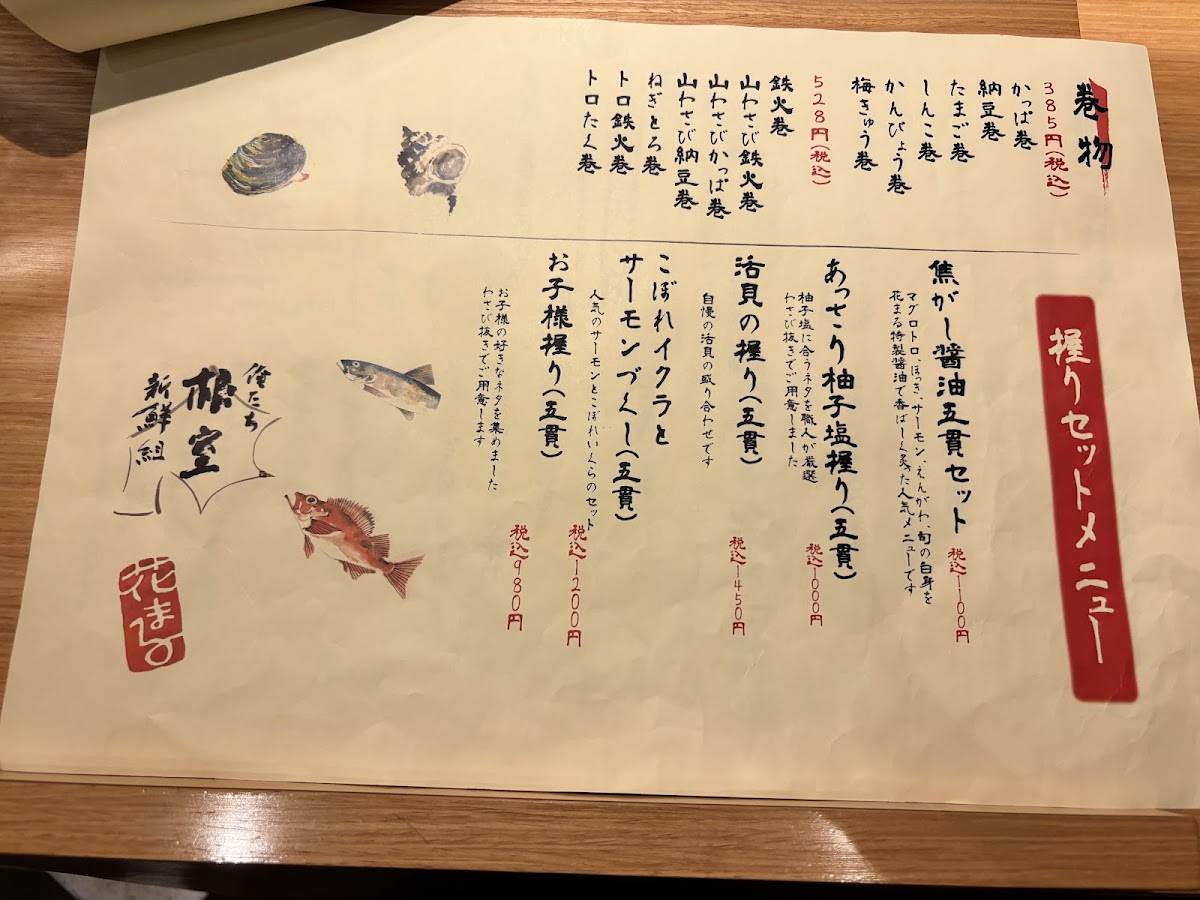 巻物
385円(税込)
かっぱ巻
納豆巻
たまご巻
しんこ巻
かんぴょう巻
梅きゅう巻
528円(税込)
鉄火巻
山わさび鉄火巻
山わさびかっぱ巻
山わさび納豆巻
ねぎとろ巻
トロ鉄火巻
トロたく巻
握りセットメニュー
焦がし醤油五貫セット
税込1100円
マグロトロ、ほっき、サーモン、えんがわ、旬の白身を
花まる特製醤油で香ばしく炙った人気メニューです
あっさり柚子塩握り(五貫)
税込1000円
柚子塩に合うネタを職人が厳選
わさび抜きでご用意しました
活貝の握り(五貫)
税込1450円
自慢の活貝の盛り合わせです
こぼれイクラと
サーモンづくし(五貫)
人気のサーモンとこぼれいくらのセット
税込1200円
お子様握り(五貫)
税込980円
お子様の好きなネタを集めました
わさび抜きでご用意します
俺たち
根室
新鮮組
花まる